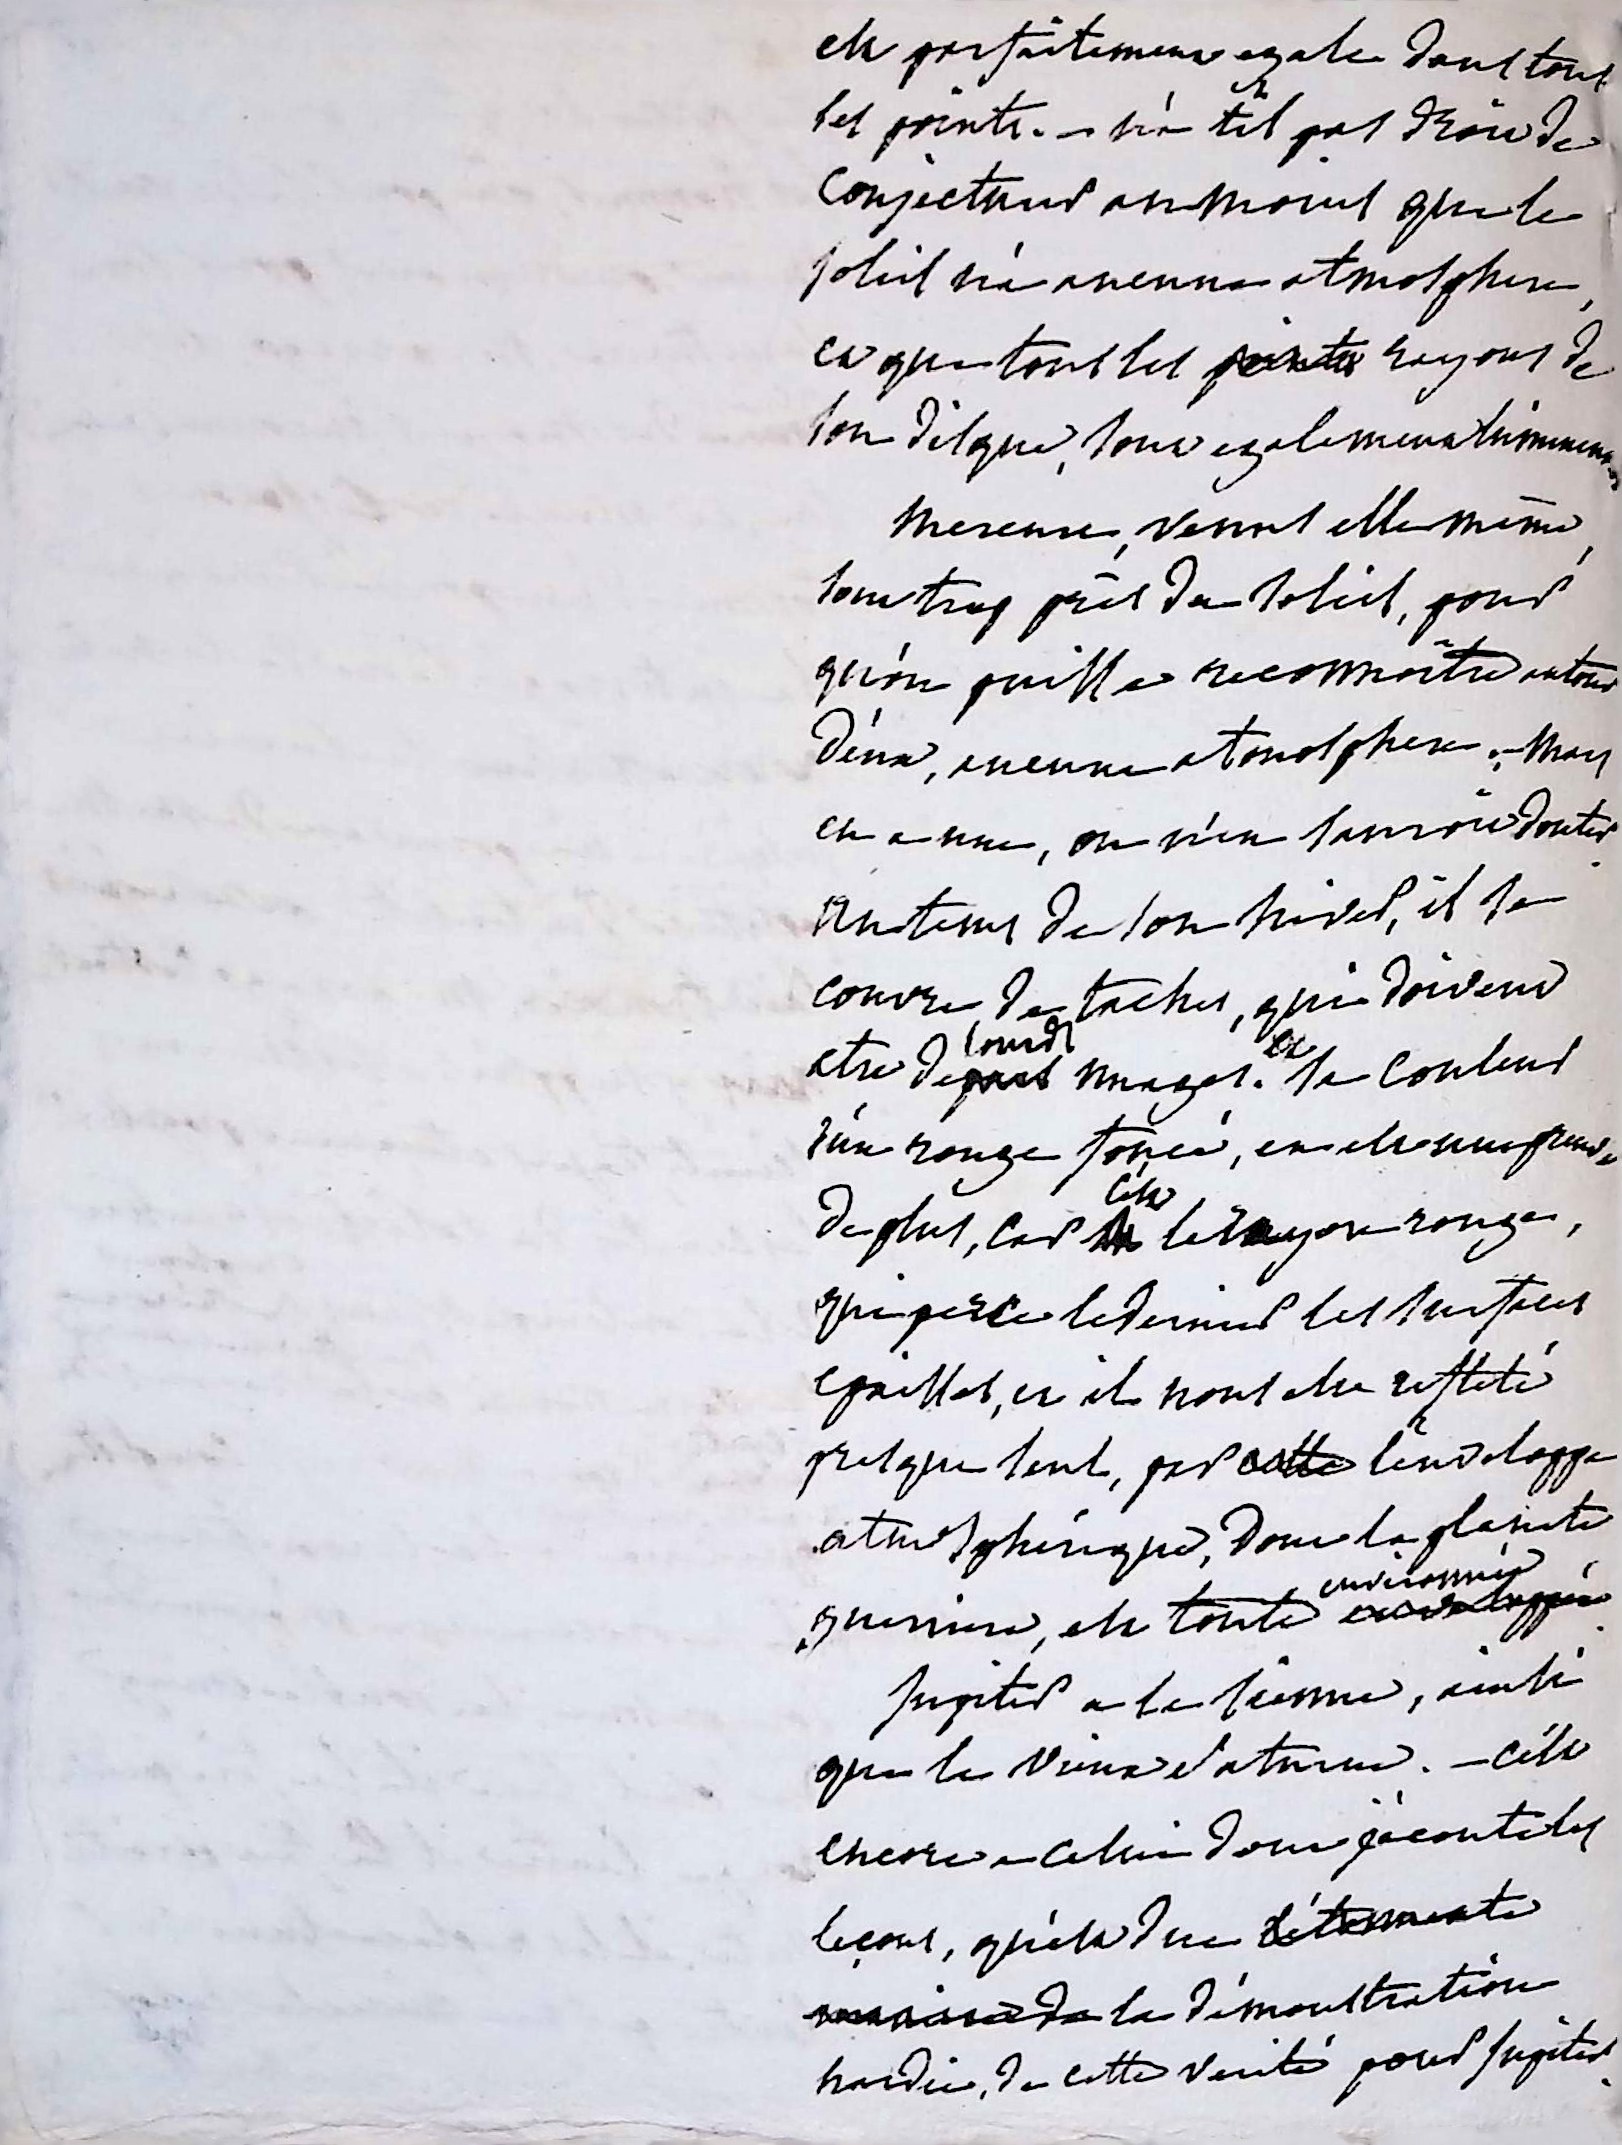 est parfaitement egale dans tous
les points. – n'a t'il pas droit de
conjecturer au moins que le
soleil n'a aucune atmosphere,
et que tous les points rayons de
son disque, sont egalement lumineux.
Mercure, venus elle même,
sont trop près du soleil, pour
qu'on puisse reconnoître autour
d'eux, aucune atmosphere. – Mars
en a une, on n'en sauroit douter.
au tems de son hiver, il se
couvre de taches, qui doivent
etre de lourds nuages. et sa couleur
d'un rouge foncé, en est une preuve
de plus, car c'est le rayon rouge,
qui perce le dernier les surfaces
epaisses, et il nous est refleté
presque seul, par cette l'enveloppe
atmosphérique, dont la planete
guerriere, est toute environnée enveloppée.
Jupiter a la sienne, ainsi
que le vieux saturne. – c'est
encore a celui dont j'écoute les
leçons, qu'est due
la démonstration
hardie, de cette verité pour Jupiter.